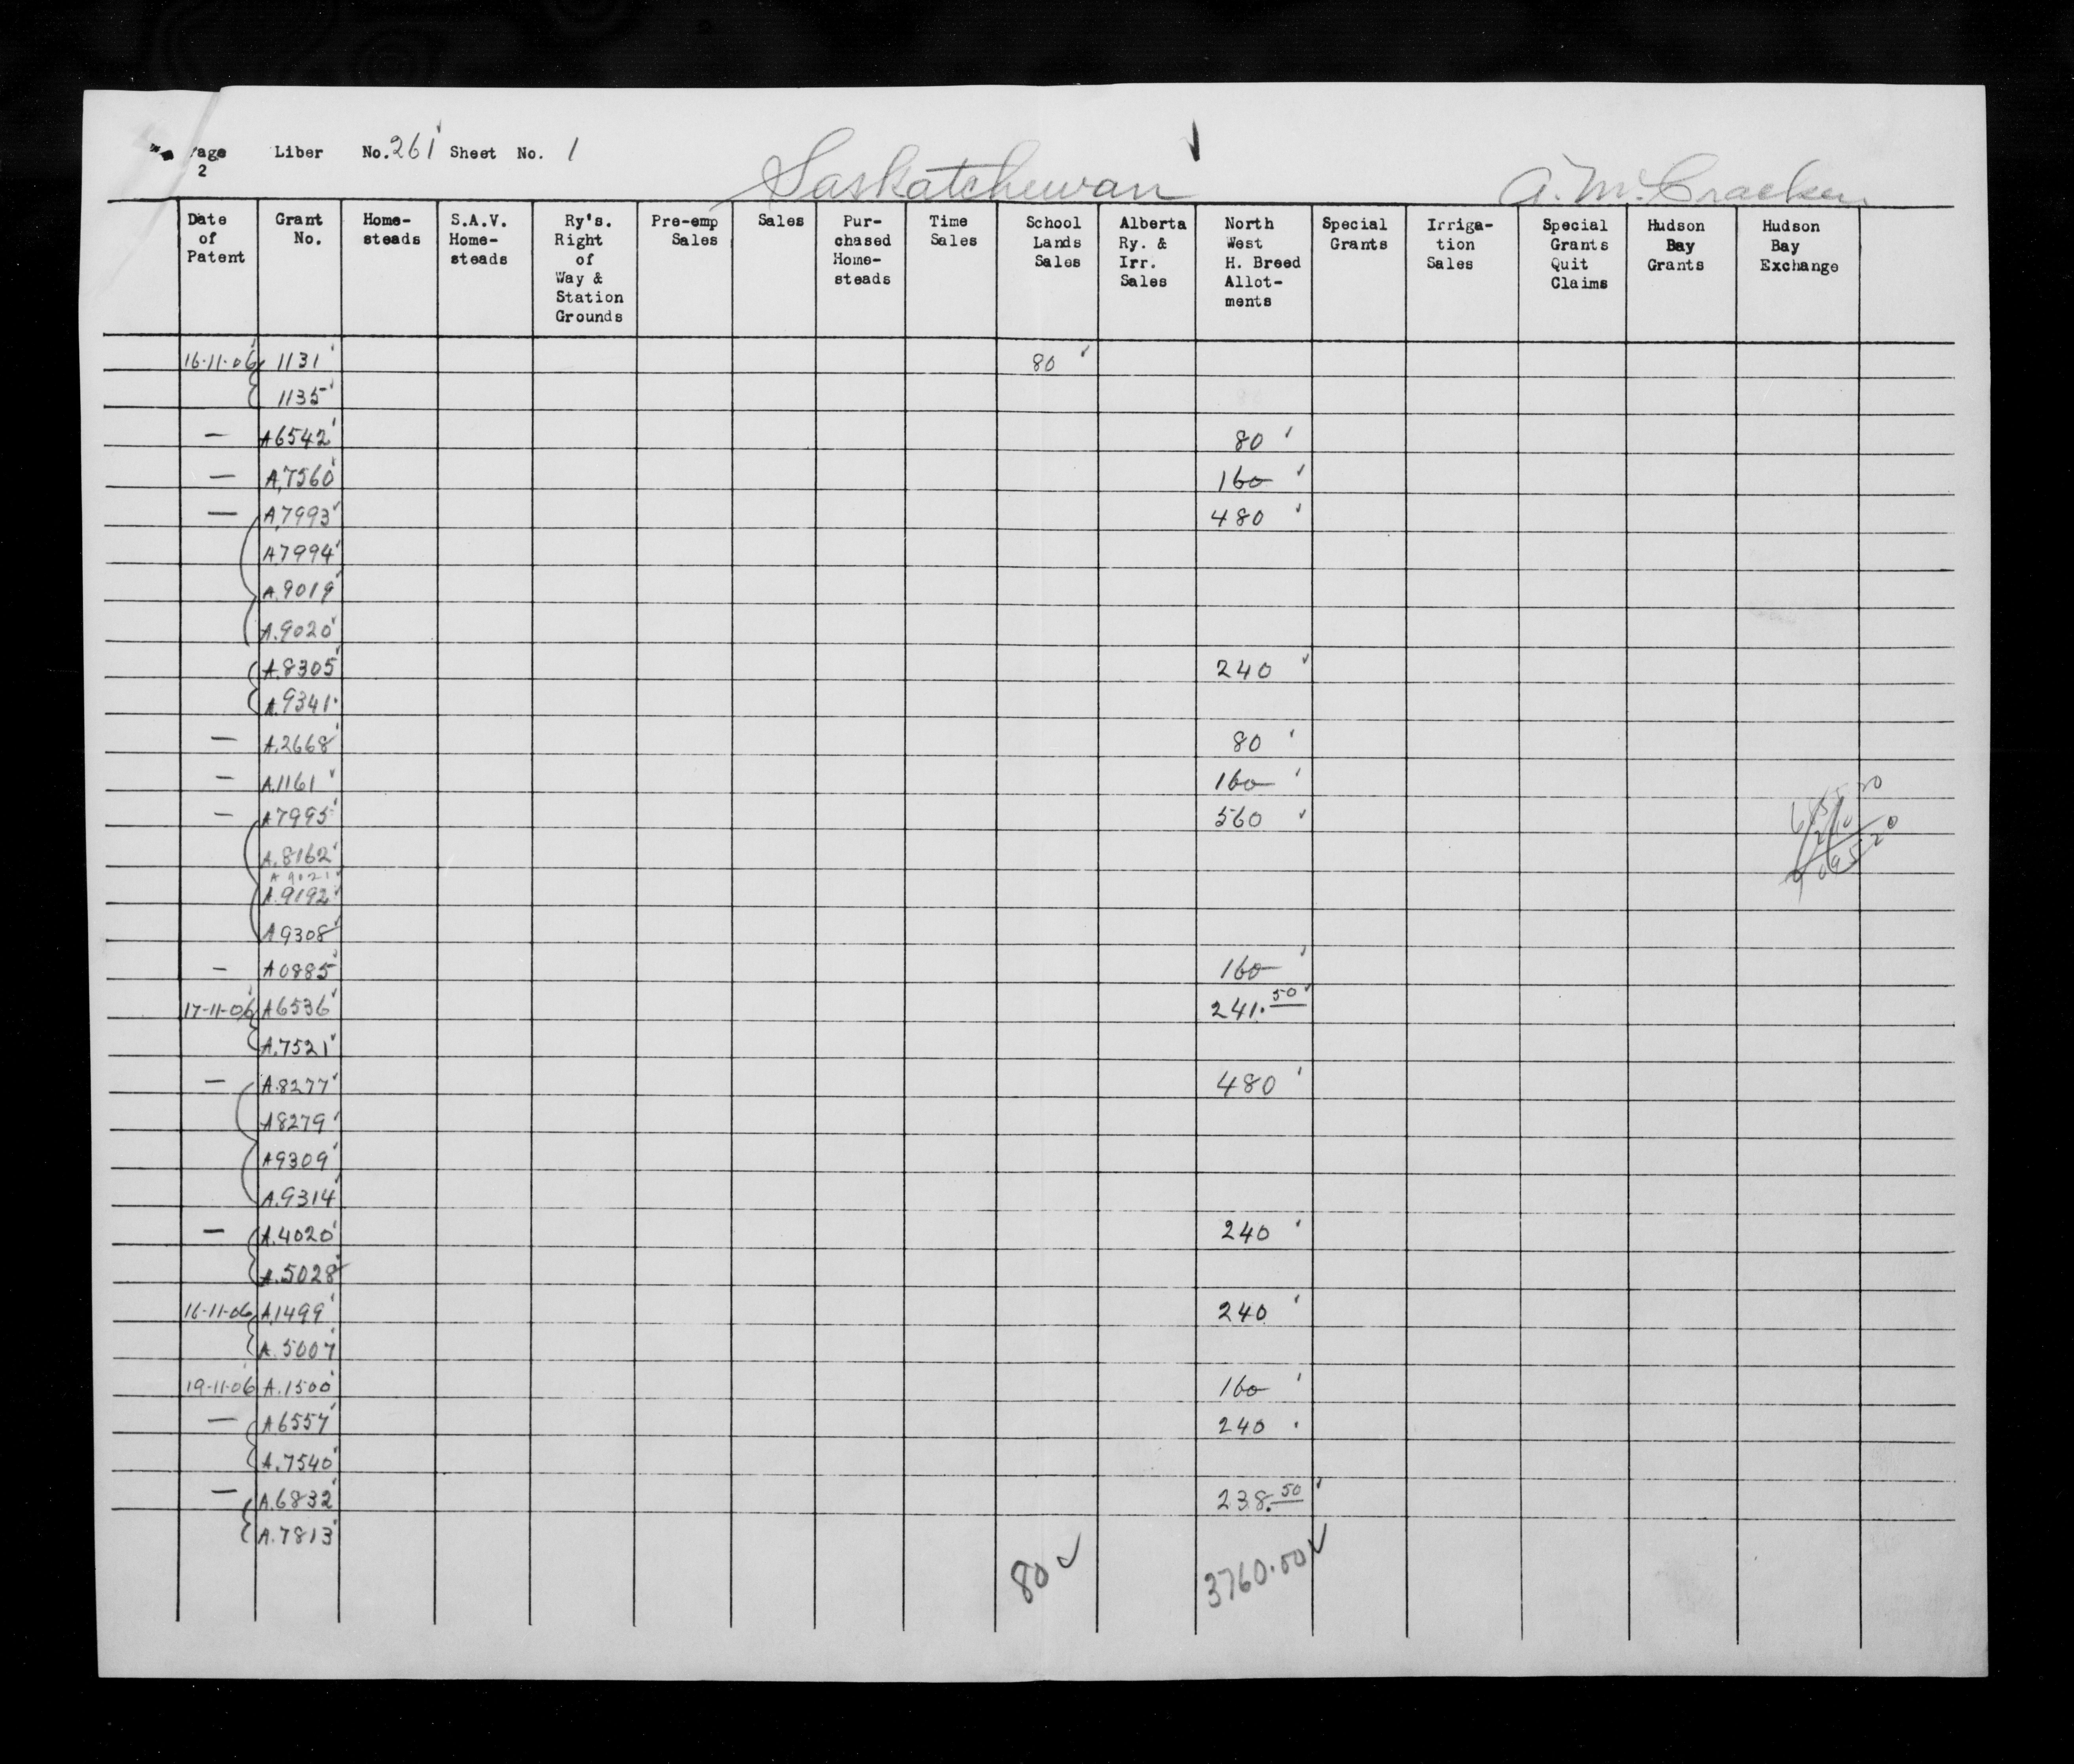 Page 2 Liber No. 261 Sheet No. 1 Saskatchewan A. McCracken
Date of Patent | Grant No. | Home-steads | S.A.V. Home-steads | Ry's. Right of Way & Station Grounds | Pre-emp Sales | Sales | Pur-chased Home-steads | Time Sales | School Lands Sales | Alberta Ry. & Irr. Sales | North West H. Breed Allot-ments | Special Grants | Irriga-tion Sales | Special Grants Quit Claims | Hudson Bay Grants | Hudson Bay Exchange
16-11-06 1131 80
1135
— A6542 80
— A.7560 160
— A.7993 480
A7994
A.9019
A.9020
A.8305 240
A.9341
— A.2668 80
— A.1161 160
— A7995 560
A.8162
A 9021
A.9192
A9308
— A0885 160
17-11-06 A6536 241.50
A.7521
— A.8277 480
A8279
A9309
A.9314
— A.4020 240
A.5028
16-11-06 A.1499 240
A.5007
19-11-06 A.1500 160
— A6557 240
A.7540
— A.6832 238.50
A.7813
80 3760.00